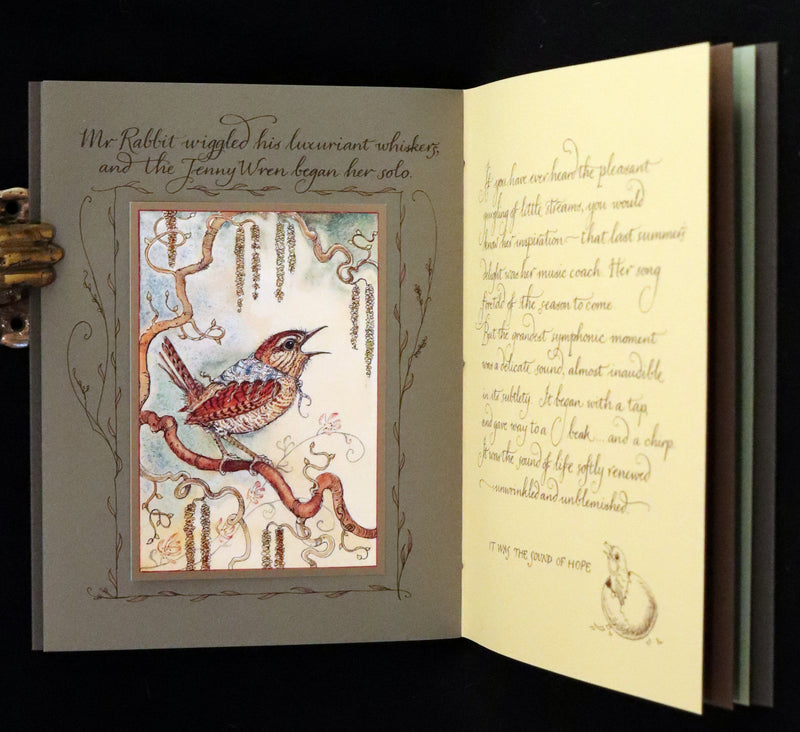 Mr Rabbit wiggled his luxuriant whiskers,
and the Jenny Wren began her solo.
If you have ever heard the pleasant
gurgling of little streams, you would
know her inspiration – that last summer's
delight was her music coach. Her song
foretold of the season to come.
But the grandest symphonic moment
was a delicate sound, almost inaudible
in its subtlety. It began with a tap,
and gave way to a beak... and a chirp.
It was the sound of life softly renewed
– unwrinkled and unblemished.
IT WAS THE SOUND OF HOPE